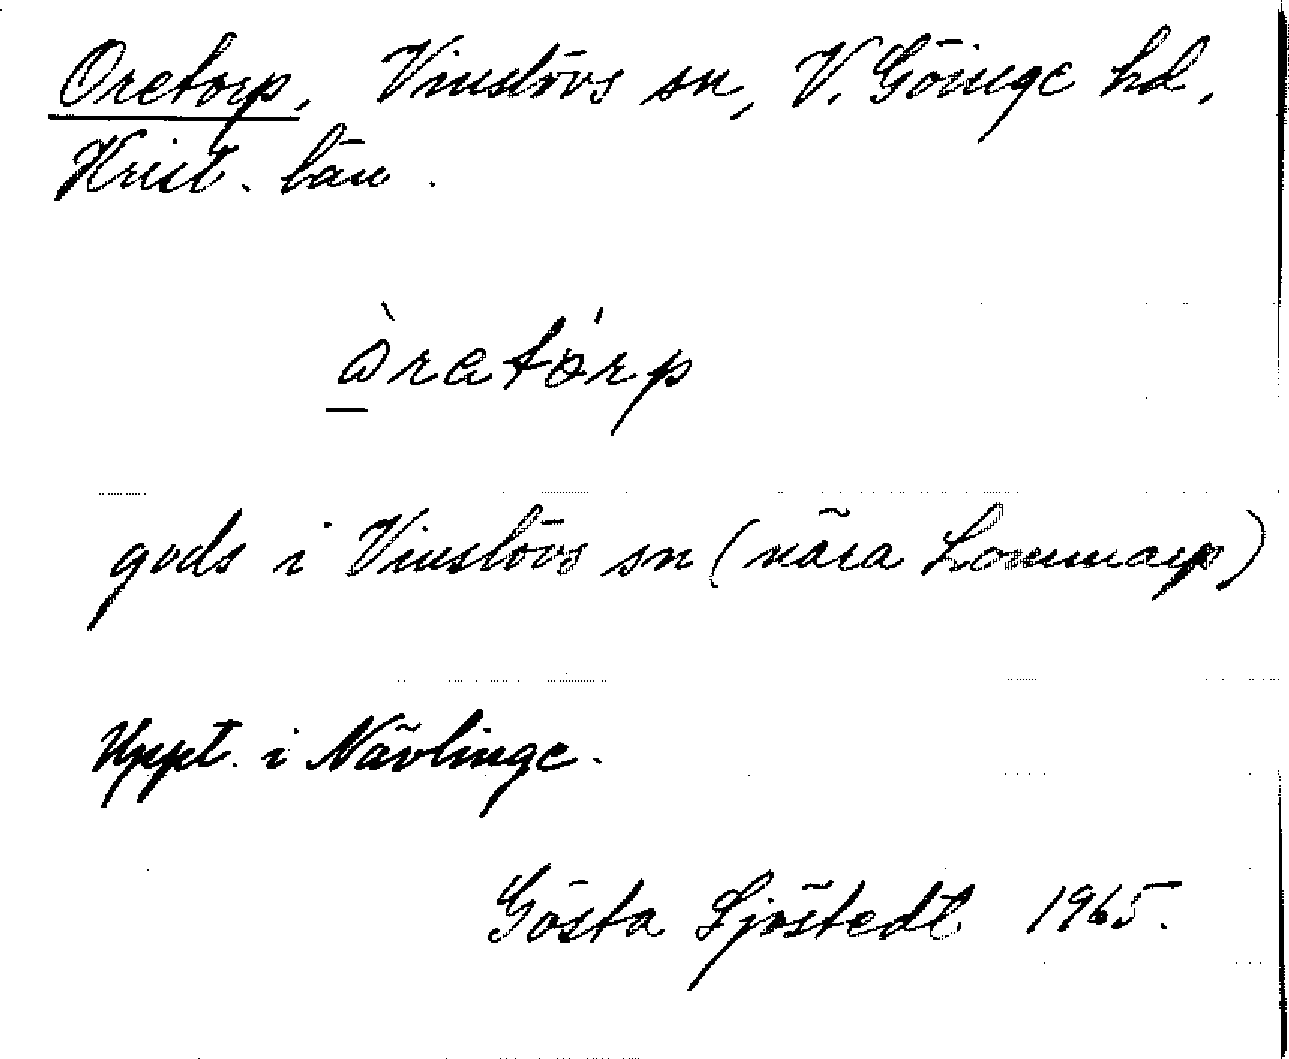 Oretorp, Vinslövs sn, V. Göinge hd,
Krist. län.
òratórp
gods i Vinslövs sn (nära Lommarp)
Uppt. i Nävlinge.
Gösta Sjöstedt 1965.